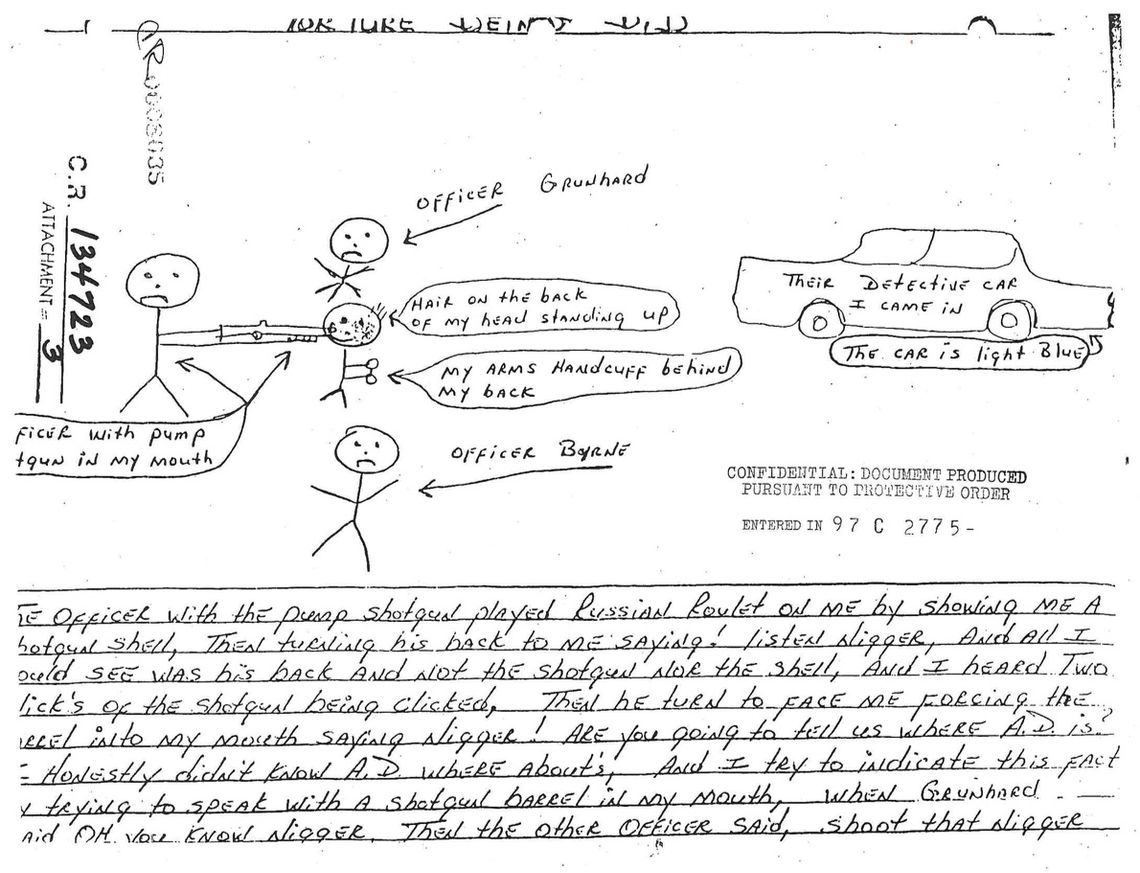 TORTURE BEING DID
OR 0008035
C.R. 134723
ATTACHMENT = 3
OFFICER GRUNHARD
HAIR ON the back
OF my head STANDING UP
MY ARMS HANDCUFF behind
My back
FICER With pump
tgun in my mouth
OFFICER BYRNE
THEIR DETECTIVE CAR
I CAME IN
The CAR is light Blue
CONFIDENTIAL: DOCUMENT PRODUCED
PURSUANT TO PROTECTIVE ORDER
ENTERED IN 97 C 2775-
E OFFICER With the pump shotgun played Russian Roulet ON ME by showing ME A
hotgun shell, Then turning his back to ME SAYING! listen Nigger, And All I
ould SEE WAS his back AND NOT the shotgun NOR the shell, AND I HEARD Two
lick's of the shotgun being clicked, Then he turn to FACE ME FORCING the
rrel into My Mouth SAYING Nigger! ARE you going to tell us WHERE A.D. is?
I HONESTLY didn't KNOW A.D. WHERE About's, And I try to indicate this FACT
y trying to SPEAK With A shotgun barrel in My Mouth, WHEN GRUNHARD
aid OH you KNOW Nigger. Then the other OFFICER SAID, shoot that Nigger